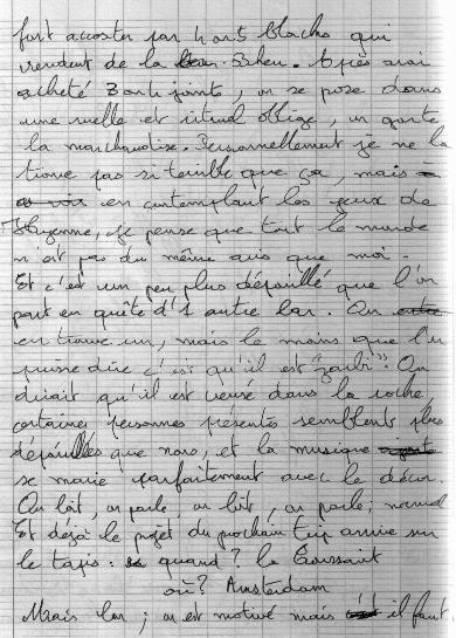 fait accoster par 4 ou 5 blacks qui
vendent de la beu. Après avoir
acheté 3 ou 4 joints, on se pose dans
une ruelle et rituel oblige, on goute
la marchandise. Personnellement je ne la
trouve pas si terrible que ça, mais
en contemplant les yeux de
je pense que tout le monde
n'est pas du même avis que moi.
Et c'est un peu plus dépouillé que l'on
part en quête d'1 autre bar. On
en trouve un, mais le moins que l'on
puisse dire c'est qu'il est "zarbi". On
dirait qu'il est creusé dans la roche,
certaines personnes présentes semblent plus
dépouillées que nous, et la musique
se marie parfaitement avec le décor.
On boit, on parle, on boit, on parle; normal
Et déjà le projet du prochain trip arrive sur
le tapis : quand? la Toussaint
où? Amsterdam
Mais bon ; on est motivé mais il faut